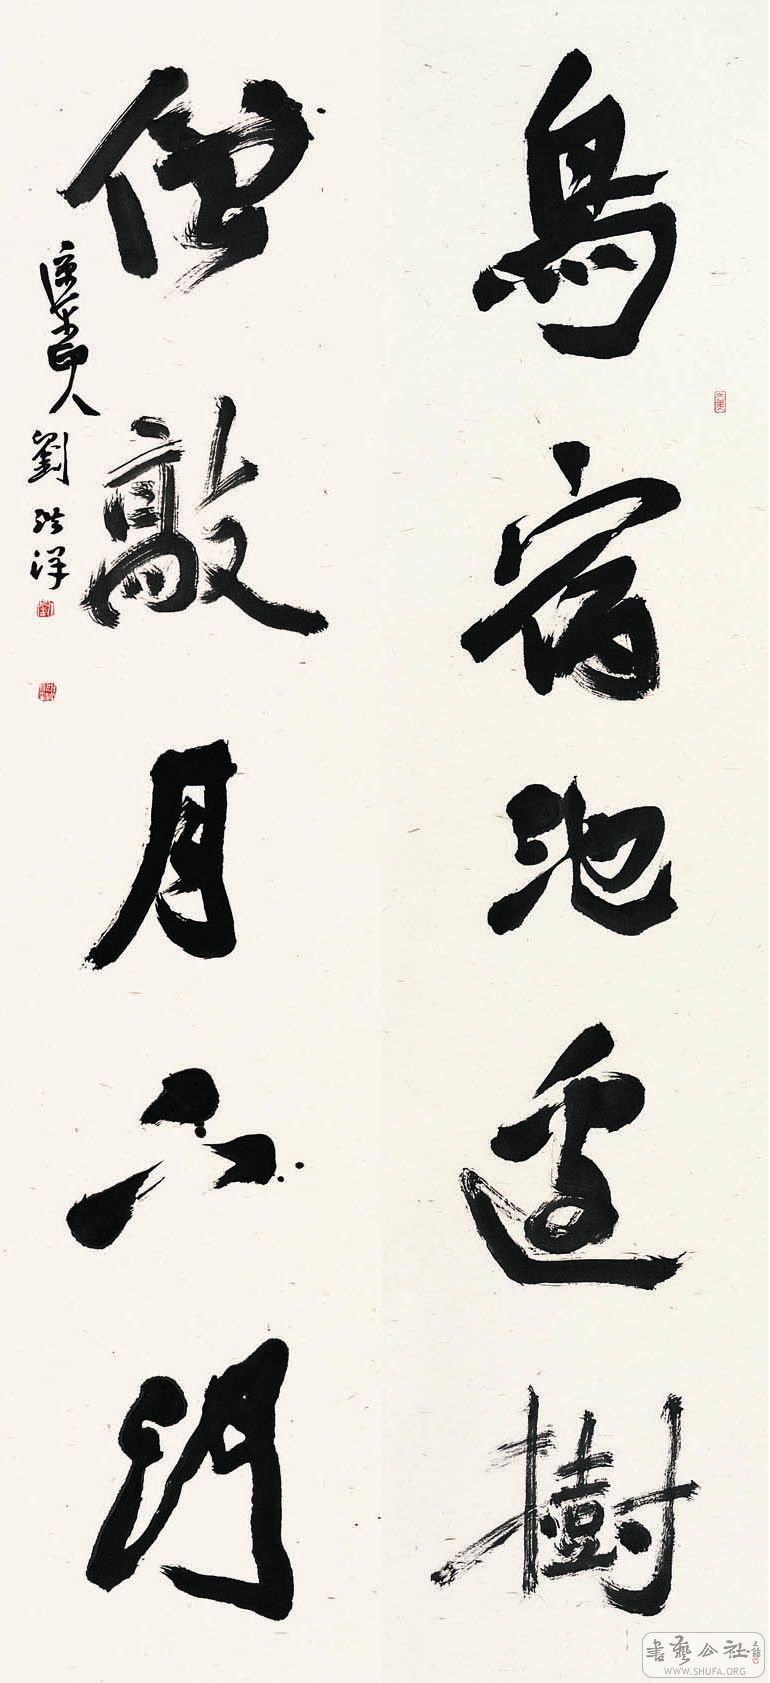 鳥宿池邊樹
僧敲月下門
劉洪洋
書藝公社
WWW.SHUFA.ORG